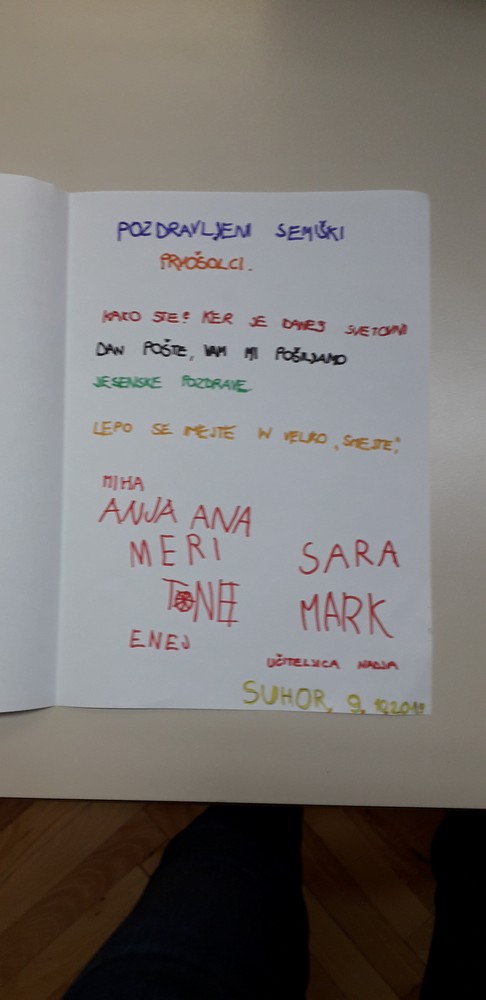 POZDRAVLJENI SEMIŠKI
PRVOŠOLCI.
KAKO STE? KER JE DANES SVETOVNI
DAN POŠTE, VAM MI POŠILJAMO
JESENSKE POZDRAVE.
LEPO SE IMEJTE IN VELIKO „SMEJTE“.
MIHA
ANJA ANA
MERI
SARA
TONE
MARK
ENEJ
UČITELJICA NADJA
SUHOR, 9. 10.2019